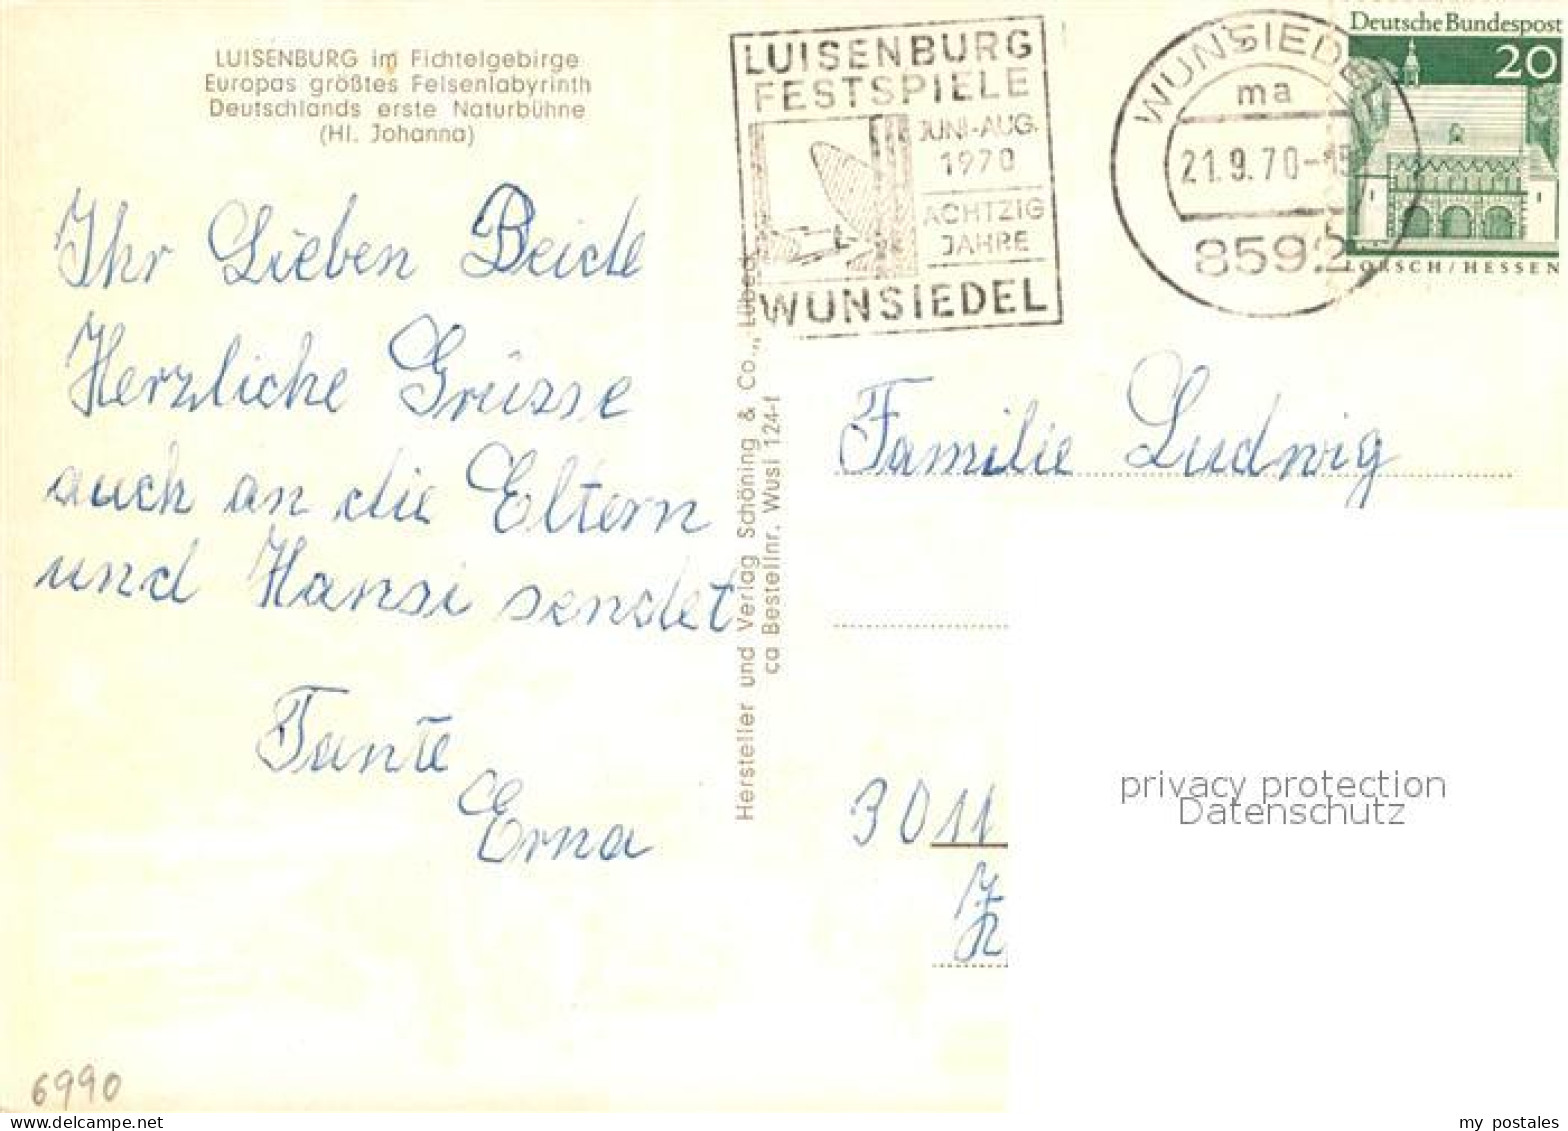 LUISENBURG im Fichtelgebirge
Europas größtes Felsenlabyrinth
Deutschlands erste Naturbühne
(Hl. Johanna)
Ihr Lieben Beide
Herzliche Grüsse
auch an die Eltern
und Hansi sendet
Tante
Erna
6990
Hersteller und Verlag Schöning & Co., Lübeck
ca Bestellnr. Wusi 124-f
LUISENBURG
FESTSPIELE
JUNI-AUG.
1970
ACHTZIG
JAHRE
WUNSIEDEL
WUNSIEDEL
ma
21.9.70-15
8592
Deutsche Bundespost
20
LORSCH/HESSEN
Familie Ludwig
3011
privacy protection
Datenschutz
www.delcampe.net
my_postales